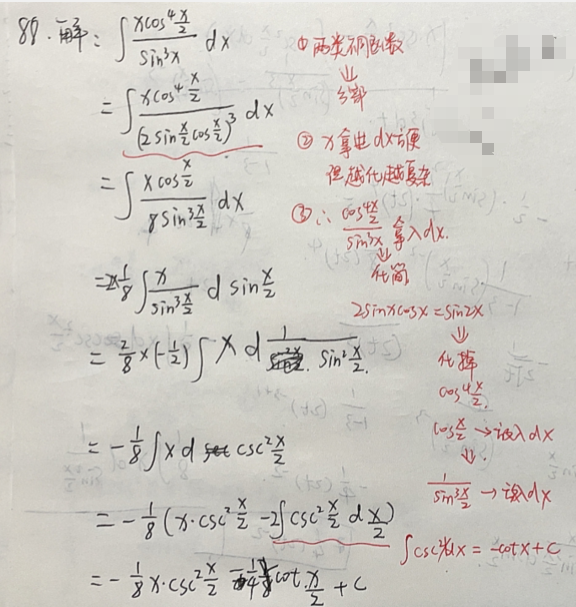 88. 解: ∫ xcos⁴(x/2) / sin³x dx
= ∫ xcos⁴(x/2) / (2sin(x/2)cos(x/2))³ dx
= ∫ xcos(x/2) / 8sin³(x/2) dx
=2×1/8 ∫ x / sin³(x/2) d sin(x/2)
= 2/8 × (-1/2) ∫ x d 1 / sin²(x/2)
= -1/8 ∫ x d csc²(x/2)
= -1/8 (x·csc²(x/2) - 2∫csc²(x/2) d x/2)
= -1/8 x·csc²(x/2) - 1/4 cot x/2 + C
① 两类不同函数
⇓
分部
② x拿进dx方便
但越化越复杂
③ ∴ cos⁴(x/2) / sin³x 拿入dx.
⇓
化简
2sinxcosx = sin2x
⇓
化掉
cos⁴(x/2)
cos(x/2) → 放入dx
⇓
1 / sin³(x/2) → 放dx
∫csc²xdx = -cotx+C